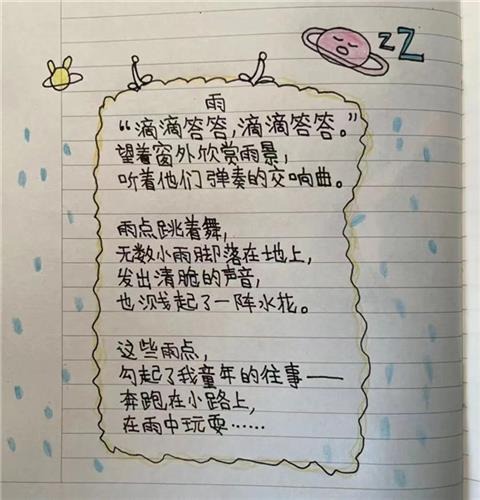 zZ
雨
“滴滴答答,滴滴答答。”
望着窗外欣赏雨景,
听着他们弹奏的交响曲。
雨点跳着舞,
无数小雨脚落在地上,
发出清脆的声音,
也溅起了一阵水花。
这些雨点,
勾起了我童年的往事——
奔跑在小路上,
在雨中玩耍……